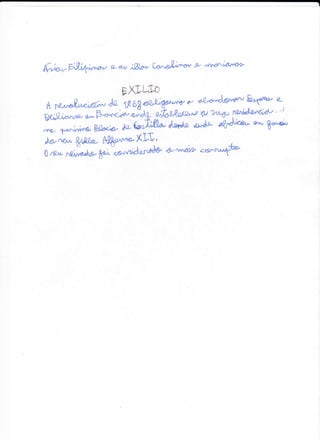 Asia, Filipinas e as illas Carolinas e Marianas
EXILIO
A revolución de 1868 obligouna a abandonar España e
exiliarse en Francia onde estableceu a súa residencia.
no palacio Palacio de Castilla dende onde abdicou en favor
do seu fillo Alfonso XII.
O seu reinado foi considerado o máis corrupto